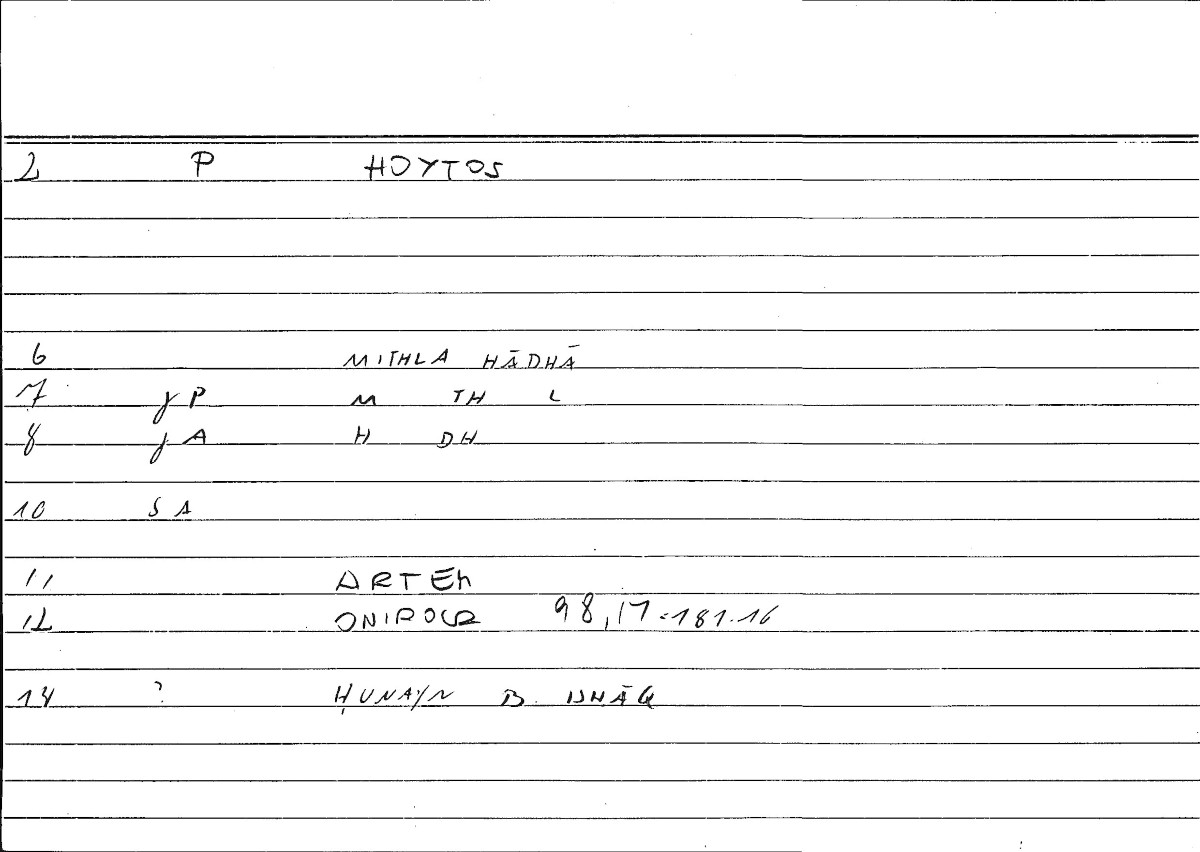 2 P HOYTOS
6 MITHLA HĀDHĀ
7 γP M TH L
8 γA H DH
10 S A
11 ARTEM
12 ONIROCR 98,17=181.16
14 ? ḤUNAYN B. ISHĀQ